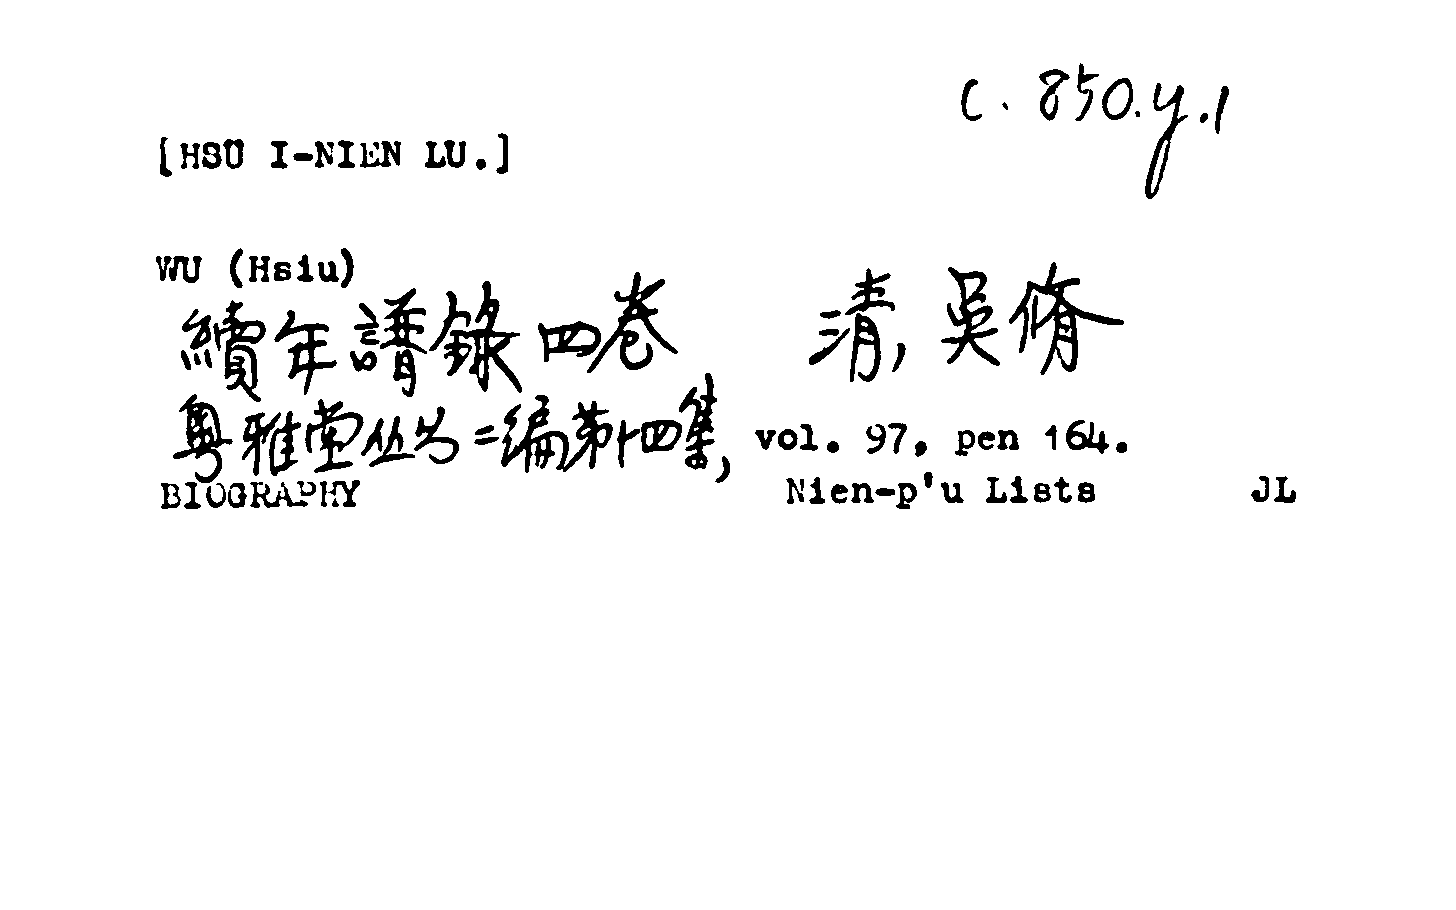 c. 850.y.1
[HSÜ I-NIEN LU.]
WU (Hsiu)
續年譜錄四卷 清, 吳脩
粤雅堂丛书=編第十四集, vol. 97, pen 164.
BIOGRAPHY Nien-p'u Lists JL